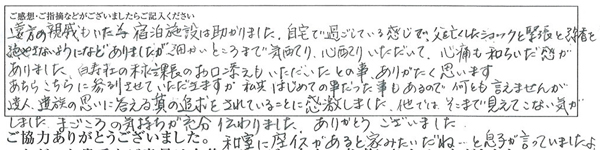 ご感想・ご指摘などがございましたらご記入ください
遠方の親戚もいた為 宿泊施設は助かりました。自宅で過ごしている感じで、父を亡したショックと緊張と
ないようになどありましたが細かいところまで気配り、心配りいただいて、心痛も和らいだ感が
ありました。白寿社の課長のお口添えもいただいたとの事、ありがたく思います
あちらこちらに参列させていただきますが 私共はじめての事だった事もあるので何とも言えませんが
故人、遺族の思いに答える質の追求をされていることに感激しました。他では、そこまで見えてこない気が
しました。まごころの気持ちが充分伝わりました。ありがとうございました。
ご協力ありがとうございました。 和室に座イスがあると家みたいだね…と息子が言っていましたよ